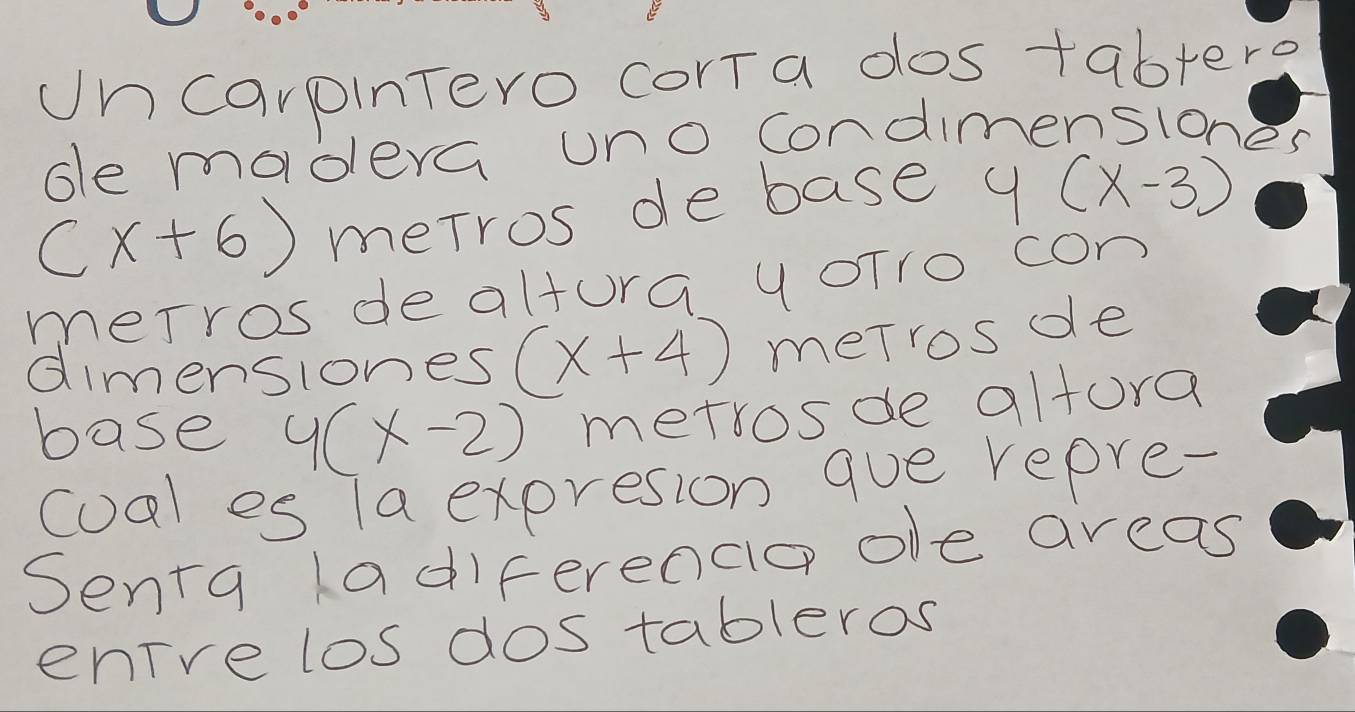 Un carpintero corta dos tabrero
de madera uno condimensiones
(x+6) metros de base y (x-3)
metros de altura y otro con
dimensiones (x+4) metros de
base y (x-2) metros de altura
cual es la expresion que repre-
senta la diferencia de areas
entre los dos tableros